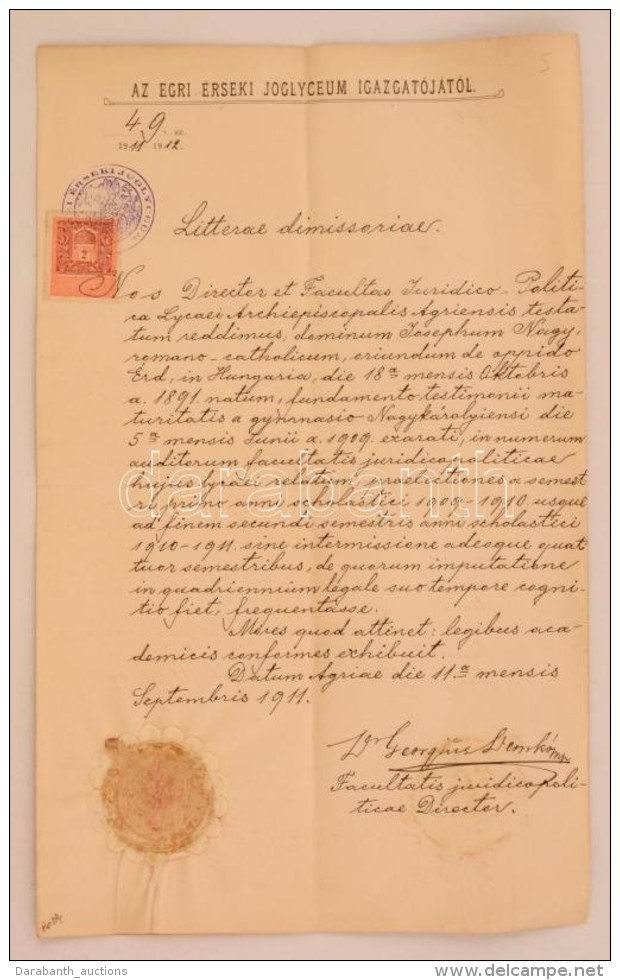 AZ EGRI ÉRSEKI JOGLYCEUM IGAZGATÓJÁTÓL.
49. sz.
1911 1912.
ÉRSEKI JOGLYC
2
Litterae dimissoriae.
Nos Director et Facultas Juridico-Politi-
ca Lycaei Archiepiscopalis Agriensis testa-
tum reddimus, dominum Josephum Nagy,
romano-catholicum, oriundum de oppido
Érd, in Hungaria, die 18a mensis Oktobris
a. 1891. natum, fundamento testimonii ma-
turitatis a gymnasio Nagykárolyiensi die
5a mensis Junii a. 1909. exarati, in numerum
auditorum facultatis juridicopoliticae
hujus lycaei relatum, praelectiones a semest-
ri primo anni scholastici 1909-1910. usque
ad finem secundi semestris anni scholastici
1910-1911. sine intermissione adeoque quat-
tuor semestribus, de quorum imputatione
in quadriennium legale suo tempore cogni-
tio fiet, frequentasse.
Mores quod attinet: legibus aca-
demicis conformes exhibuit.
Datum Agriae die 11.a mensis
Septembris 1911.
Dr Georgius Demkó mp.
Facultatis juridicopoli-
ticae Director.
darabanth
Darabanth_auctions
delcampe.net